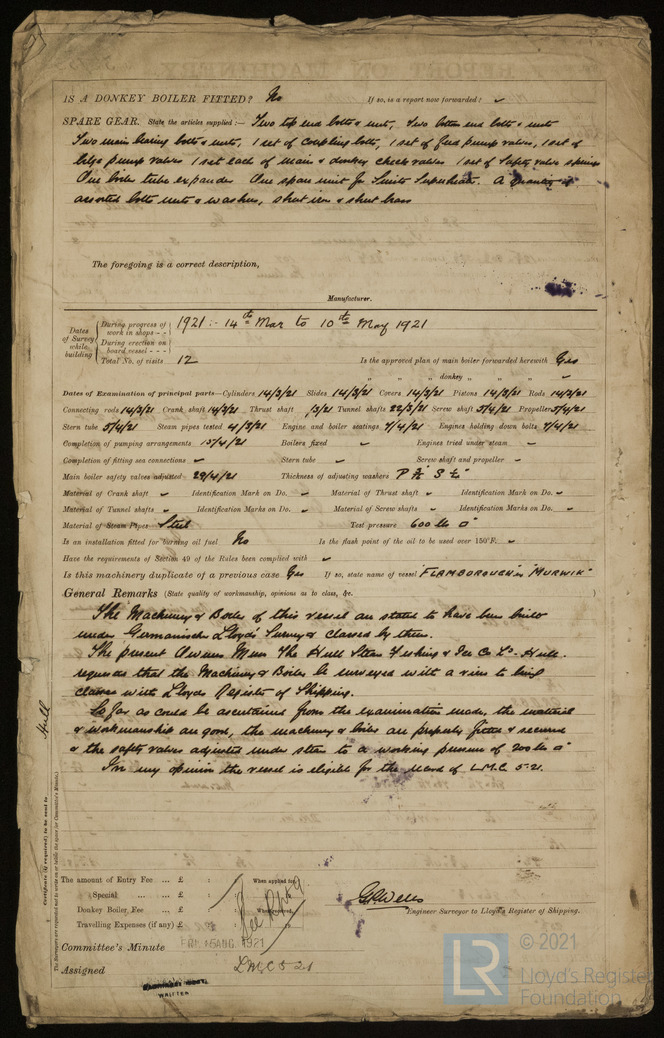 IS A DONKEY BOILER FITTED? No If so, is a report now forwarded? ✓
SPARE GEAR. State the articles supplied:— Two top end bolts & nuts, Two bottom end bolts & nuts
Two main bearing bolts & nuts, 1 set of coupling bolts, 1 set of feed pump valves, 1 set of
bilge pump valves 1 set each of main & donkey check valves 1 set of safety valve springs
One boiler tube expander One spare unit for Smiths Superheater. A quantity of
assorted bolts nuts & washers, sheet iron & sheet brass
The foregoing is a correct description,
Manufacturer.
Dates of Survey while building
During progress of work in shops - - 1921:- 14th Mar to 10th May 1921
During erection on board vessel - - -
Total No. of visits 12 Is the approved plan of main boiler forwarded herewith Yes
" " " donkey " " " ✓
Dates of Examination of principal parts—Cylinders 14/3/21 Slides 14/3/21 Covers 14/3/21 Pistons 14/3/21 Rods 14/3/21
Connecting rods 14/3/21 Crank shaft 14/3/21 Thrust shaft /3/21 Tunnel shafts 22/3/21 Screw shaft 5/4/21 Propeller 5/4/21
Stern tube 5/4/21 Steam pipes tested 4/3/21 Engine and boiler seatings 7/4/21 Engines holding down bolts 7/4/21
Completion of pumping arrangements 15/4/21 Boilers fixed ✓ Engines tried under steam ✓
Completion of fitting sea connections ✓ Stern tube ✓ Screw shaft and propeller ✓
Main boiler safety valves adjusted 29/4/21 Thickness of adjusting washers P S
Material of Crank shaft ✓ Identification Mark on Do. ✓ Material of Thrust shaft ✓ Identification Mark on Do. ✓
Material of Tunnel shafts ✓ Identification Marks on Do. ✓ Material of Screw shafts ✓ Identification Marks on Do. ✓
Material of Steam Pipes Steel Test pressure 600 lbs □"
Is an installation fitted for burning oil fuel No Is the flash point of the oil to be used over 150°F. ✓
Have the requirements of Section 49 of the Rules been complied with ✓
Is this machinery duplicate of a previous case Yes If so, state name of vessel "FLAMBOROUGH" ex "MURWIK"
General Remarks (State quality of workmanship, opinions as to class, &c. )
The Machinery & Boiler of this vessel are stated to have been built
under Germanischer Lloyds Survey & classed by them.
The present Owners Messrs The Hull Steam Fishing & Ice Co Ld Hull
requests that the Machinery & Boiler be surveyed with a view to being
classed with Lloyds Register of Shipping.
So far as could be ascertained from the examination made, the material
& workmanship are good, the machinery & boiler are properly fitted & secured
& the safety valves adjusted under steam to a working pressure of 200 lbs □"
In my opinion the vessel is eligible for the record of L.M.C 5-21.
Hull
Certificate (if required) to be sent to
The Surveyors are requested not to write on or below the space for Committee's Minute.
The amount of Entry Fee ... £ : : When applied for,
Special ... ... £ : :
Donkey Boiler Fee ... £ : : When received,
Travelling Expenses (if any) £ : :
See Rpt 9
G R Wells
Engineer Surveyor to Lloyd's Register of Shipping.
Committee's Minute FRI. 5 AUG. 1921
Assigned LMC 5.21
MACHINERY CERT. WRITTEN
LR
© 2021
Lloyd's Register
Foundation